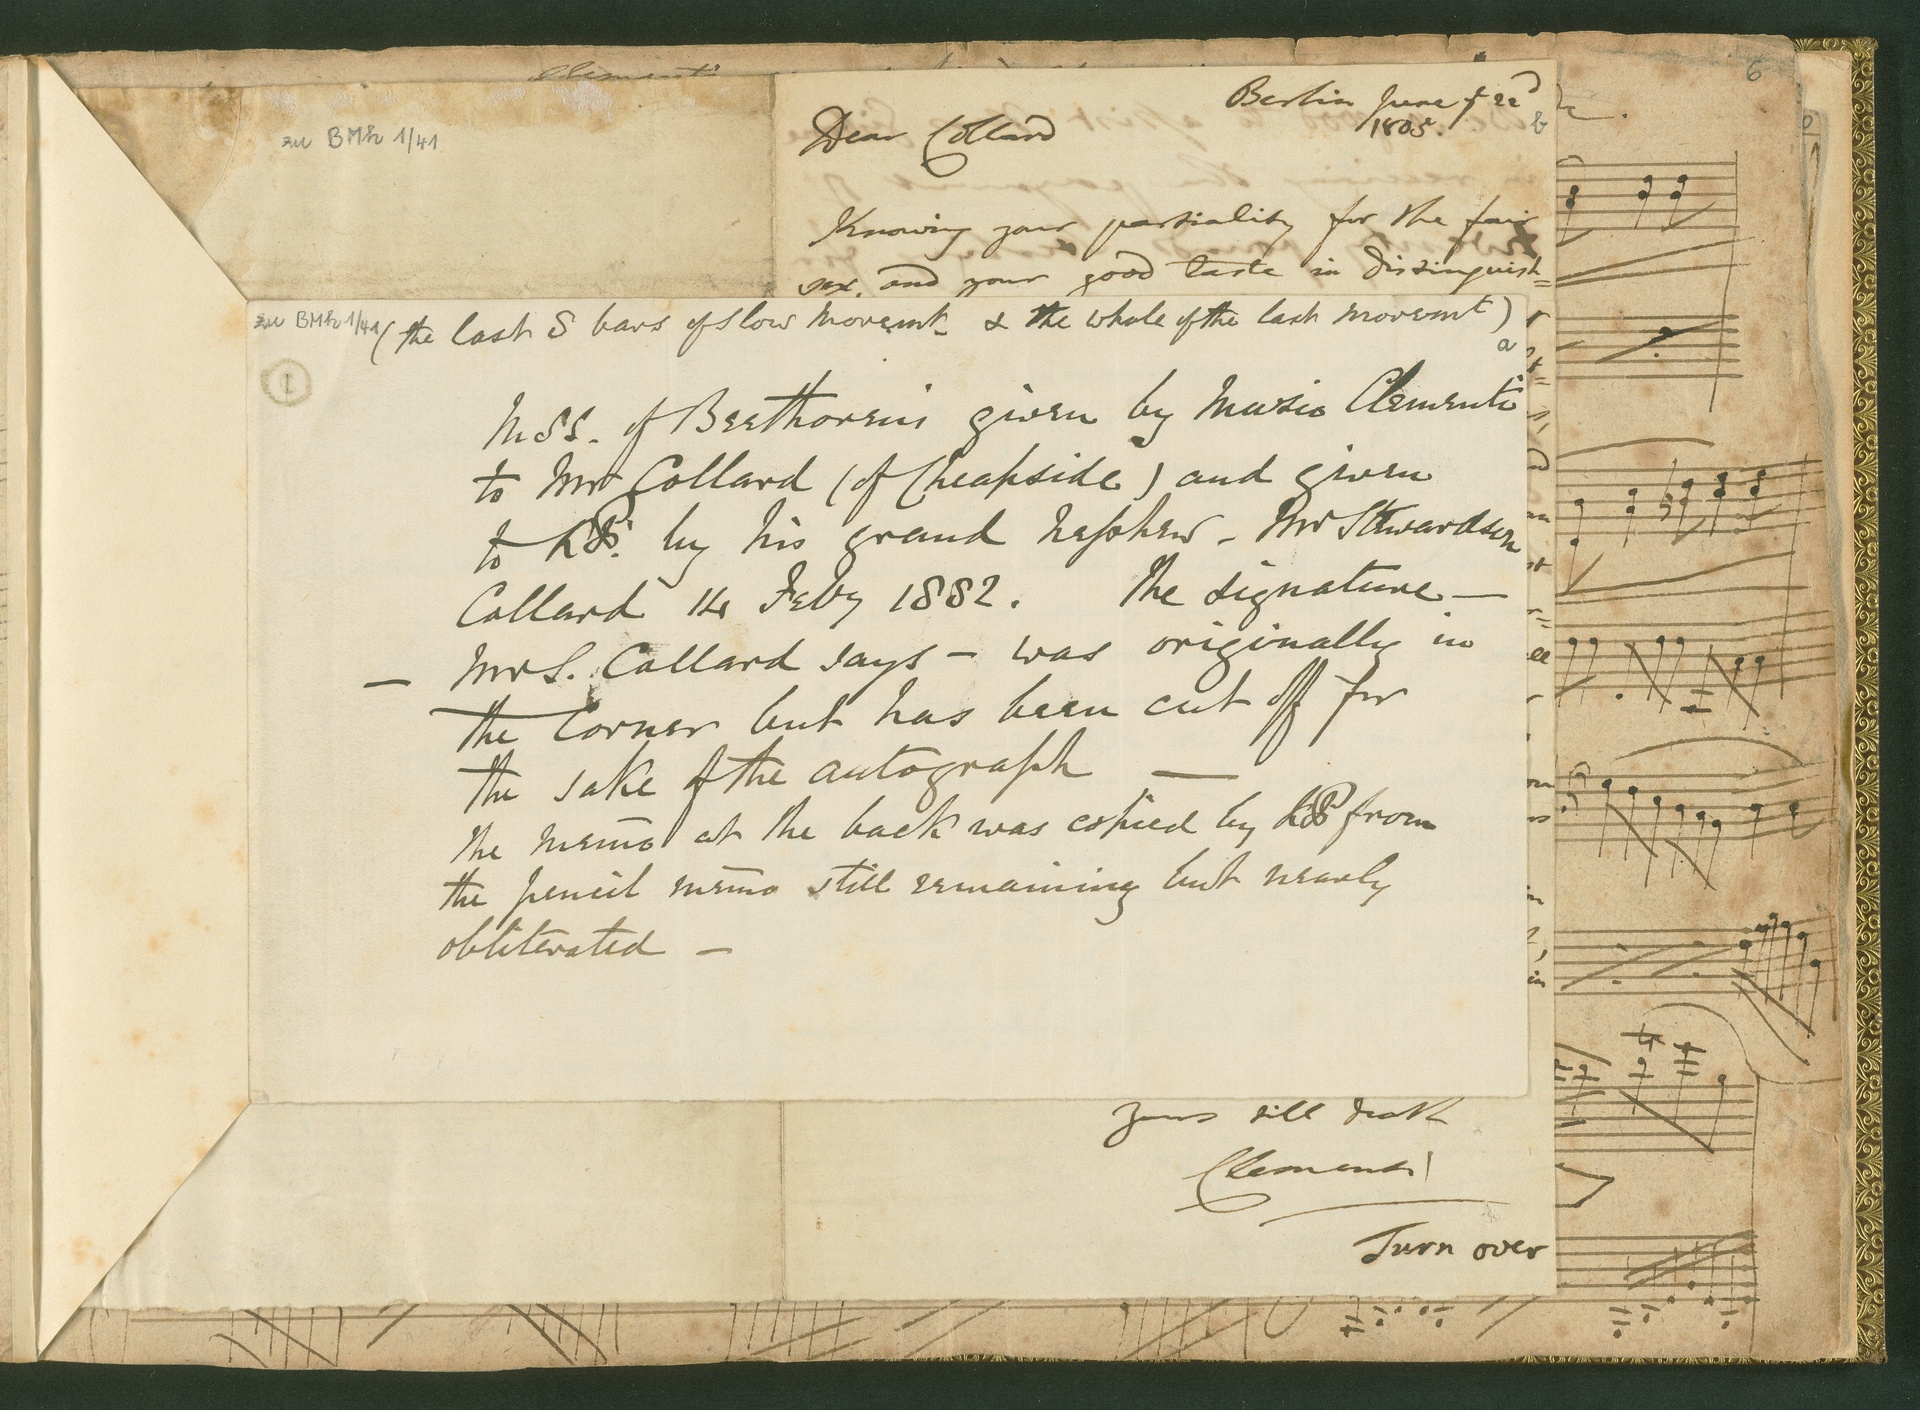 Clementi
6
zu BMh 1/41
Berlin June ye 22d
1805.
b
Dear Collard
Knowing your partiality for the fair
sex, and your good taste in distinguish=
zu BMh 1/41
(the last 8 bars of slow movemt. & the whole of the last movement)
a
1
MSS. of Beethovens given by Muzio Clementi
to Mr Collard (of Cheapside) and given
to by his grand nephew - Mr Stewardson
Collard 14 Feby 1882. The signature —
— Mr S. Collard says — was originally in
the corner but has been cut off for
the sake of the autograph —
the memo at the back was copied by from
the pencil memo still remaining but nearly
obliterated —
yours till death
Clementi
Turn over